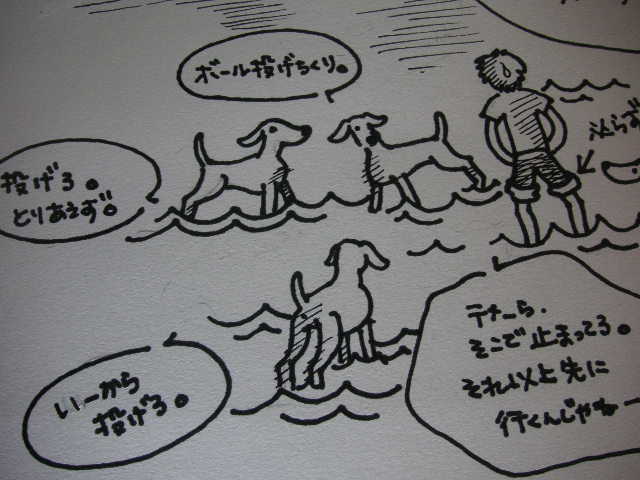 ボール投げちくり。
投げろ。
とりあえず。
いーから
投げろ。
テナーら、
そこで止まってろ。
それ以上先に
行くんじゃねー